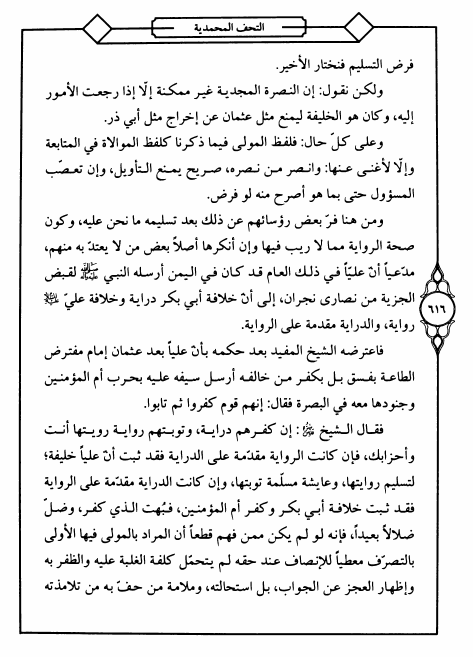 التحف المحمدية
فرض التسليم فنختار الأخير.
ولكن نقول: إن النصرة المجدية غير ممكنة إلّا إذا رجعت الأمور
إليه، وكان هو الخليفة ليمنع مثل عثمان عن إخراج مثل أبي ذر.
وعلى كلّ حال: فلفظ المولى فيما ذكرنا كلفظ الموالاة في المتابعة
وإلّا لأغنى عنها: وانصر من نصره، صريح يمنع التأويل، وإن تعصّب
المسؤول حتى بما هو أصرح منه لو فرض.
ومن هنا فرّ بعض رؤسائهم عن ذلك بعد تسليمه ما نحن عليه، وكون
صحة الرواية مما لا ريب فيها وإن أنكرها أصلاً بعض من لا يعتد به منهم،
مدّعياً أنّ عليّاً في ذلك العام قد كان في اليمن أرسله النبي ﷺ لقبض
الجزية من نصارى نجران، إلى أنّ خلافة أبي بكر دراية وخلافة عليّ
رواية، والدراية مقدمة على الرواية.
٦١٦
فاعترضه الشيخ المفيد بعد حكمه بأنّ علياً بعد عثمان إمام مفترض
الطاعة بفسق بل بكفر من خالفه أرسل سيفه عليه بحرب أم المؤمنين
وجنودها معه في البصرة فقال: إنهم قوم كفروا ثم تابوا.
فقال الشيخ : إن كفرهم دراية، وتوبتهم رواية رويتها أنت
وأحزابك، فإن كانت الرواية مقدّمة على الدراية فقد ثبت أنّ علياً خليفة؛
لتسليم روايتها، وعايشة مسلّمة توبتها، وإن كانت الدراية مقدّمة على الرواية
فقد ثبت خلافة أبي بكر وكفر أم المؤمنين، فبُهت الذي كفر، وضلّ
ضلالاً بعيداً، فإنه لو لم يكن ممن فهم قطعاً أن المراد بالمولى فيها الأولى
بالتصرّف معطياً للإنصاف عند حقه لم يتحمّل كلفة الغلبة عليه والظفر به
وإظهار العجز عن الجواب، بل استحالته، وملامة من حفّ به من تلامذته